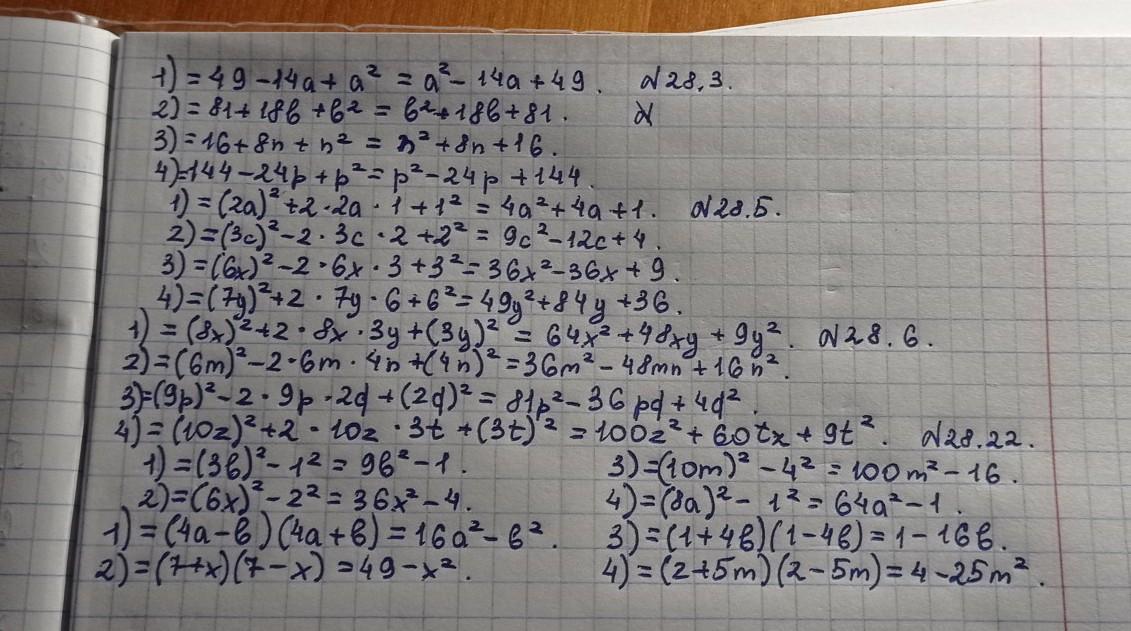 1) = 49 - 14a + a² = a² - 14a + 49. №28.3.
2) = 81 + 18b + b² = b² + 18b + 81. №
3) = 16 + 8n + n² = n² + 8n + 16.
4) = 144 - 24p + p² = p² - 24p + 144.
1) = (2a)² + 2 · 2a · 1 + 1² = 4a² + 4a + 1. №28.5.
2) = (3c)² - 2 · 3c · 2 + 2² = 9c² - 12c + 4.
3) = (6x)² - 2 · 6x · 3 + 3² = 36x² - 36x + 9.
4) = (7y)² + 2 · 7y · 6 + 6² = 49y² + 84y + 36.
1) = (8x)² + 2 · 8x · 3y + (3y)² = 64x² + 48xy + 9y². №28.6.
2) = (6m)² - 2 · 6m · 4n + (4n)² = 36m² - 48mn + 16n².
3) = (9p)² - 2 · 9p · 2q + (2q)² = 81p² - 36pq + 4q².
4) = (10z)² + 2 · 10z · 3t + (3t)² = 100z² + 60tx + 9t². №28.22.
1) = (3b)² - 1² = 9b² - 1. 3) = (10m)² - 4² = 100m² - 16.
2) = (6x)² - 2² = 36x² - 4. 4) = (8a)² - 1² = 64a² - 1.
1) = (4a - b)(4a + b) = 16a² - b². 3) = (1 + 4b)(1 - 4b) = 1 - 16b.
2) = (7 + x)(7 - x) = 49 - x². 4) = (2 + 5m)(2 - 5m) = 4 - 25m².